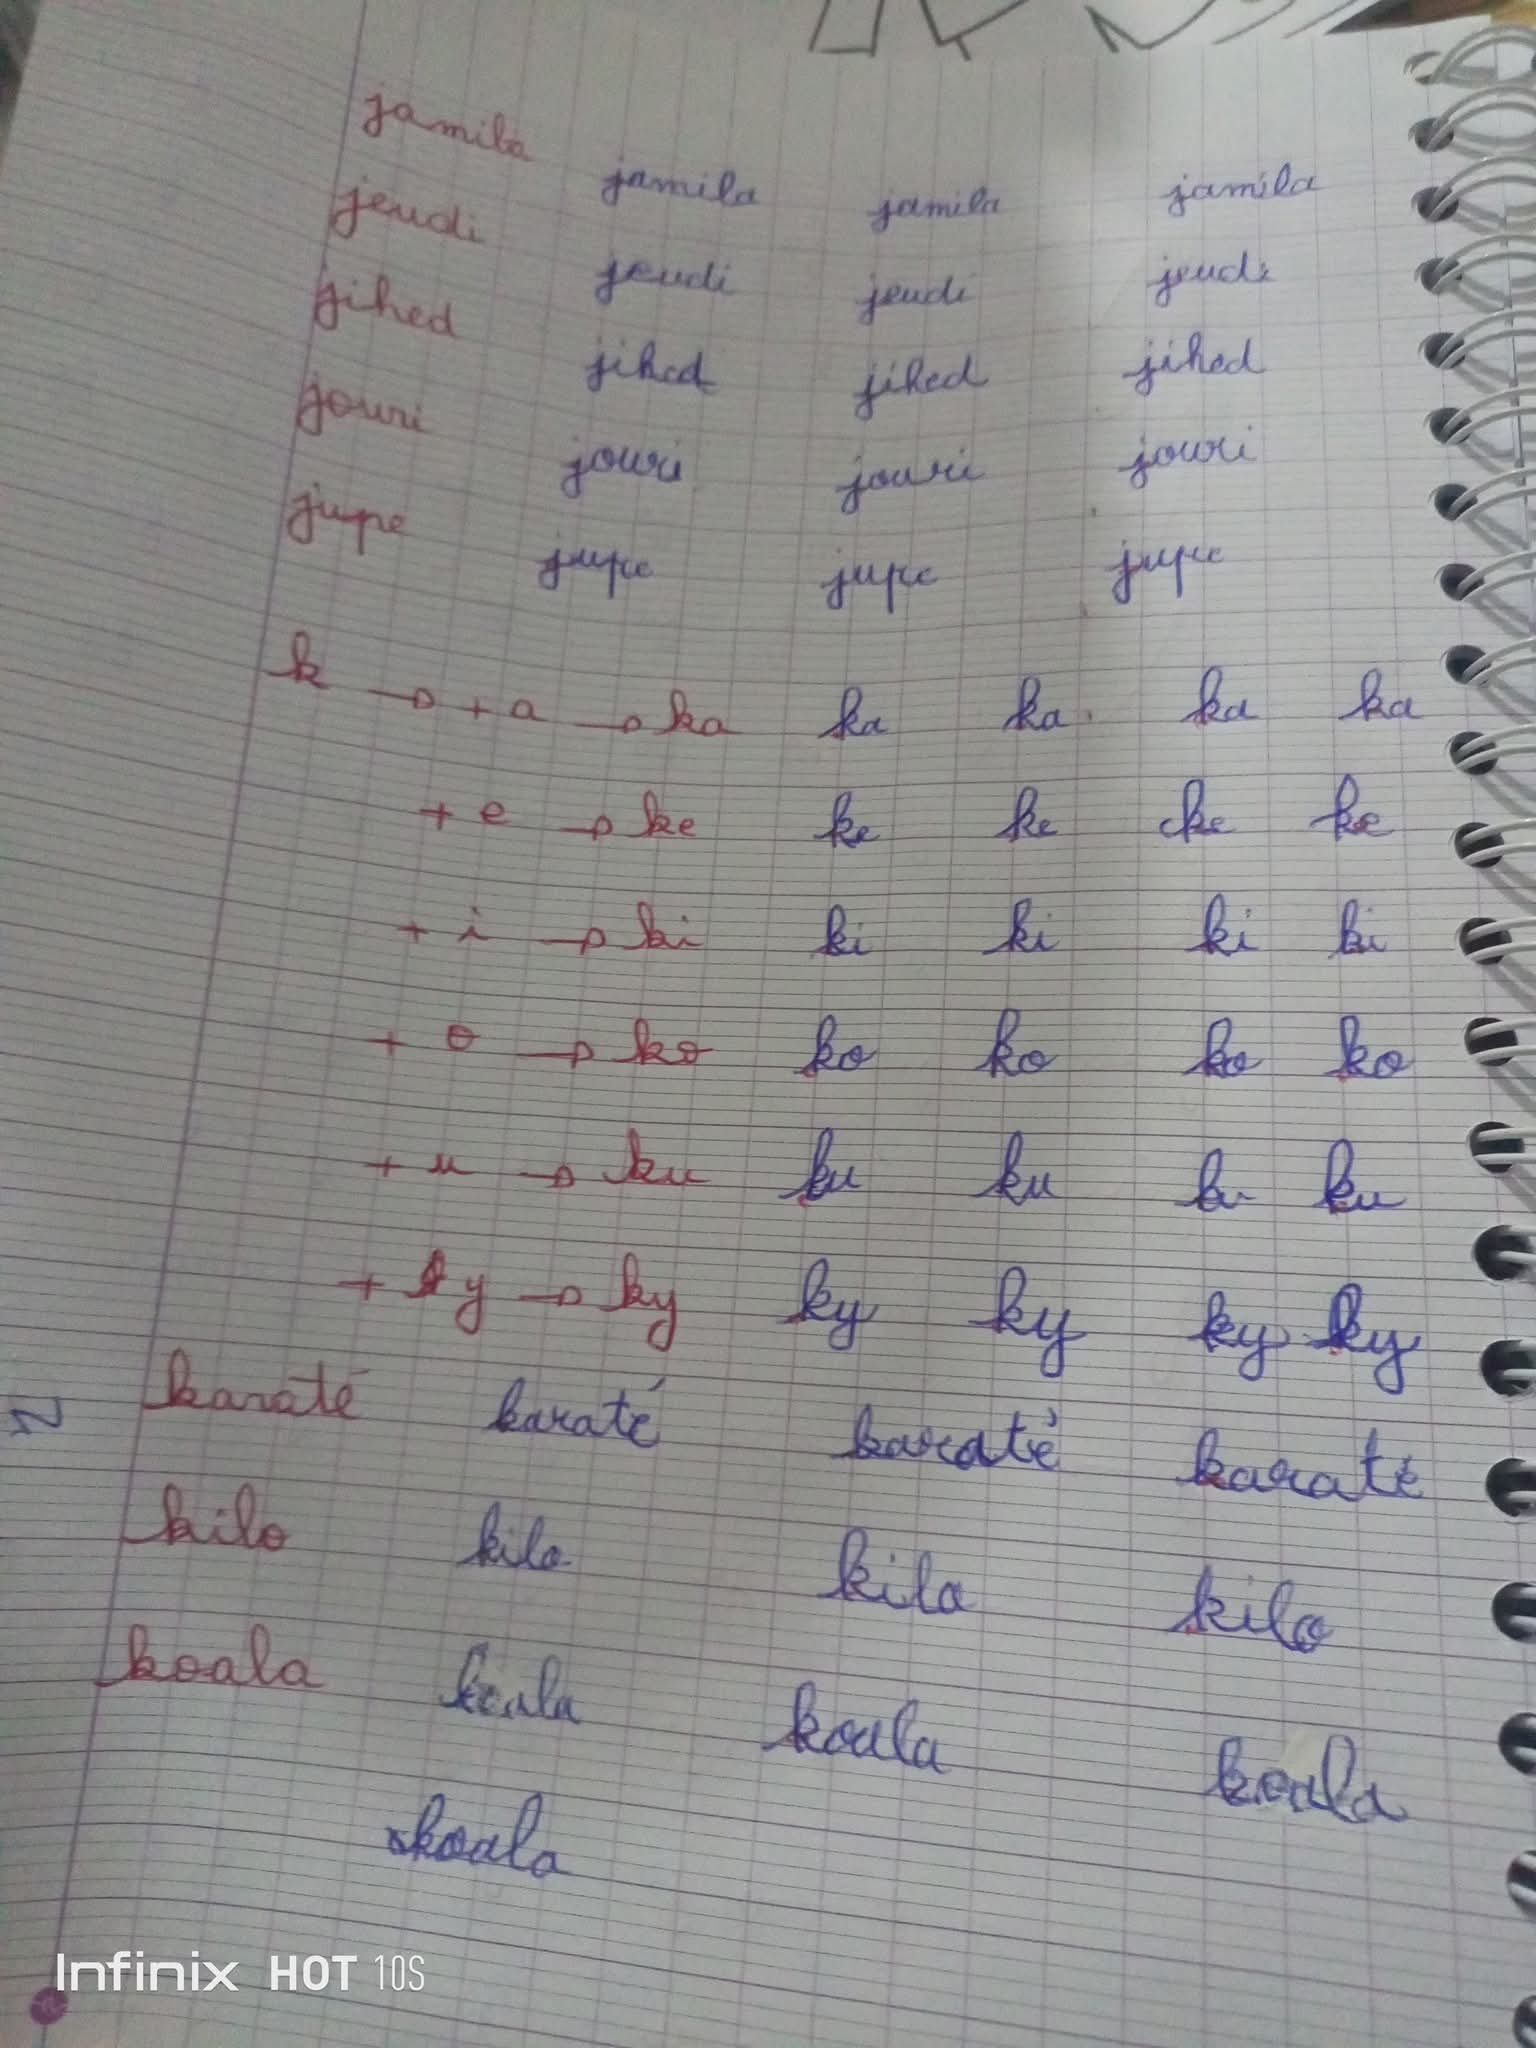 jamila jamila jamila jamila
jeudi jeudi jeudi jeudi
jihed jihed jihed jihed
jouri jouri jouri jouri
jupe jupe jupe jupe
k → + a → ka ka ka ka ka
+ e → ke ke ke ke ke
+ i → ki ki ki ki ki
+ o → ko ko ko ko ko
+ u → ku ku ku ku ku
+ y → ky ky ky ky ky
karaté karaté karaté karaté
kilo kilo kila kilo
koala koala koala koala
koala
Infinix HOT 10S